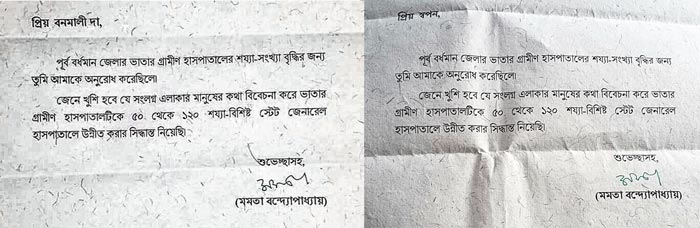 প্রিয় বনমালী দা,
পূর্ব বর্ধমান জেলার ভাতার গ্রামীণ হাসপাতালের শয্যা-সংখ্যা বৃদ্ধির জন্য
তুমি আমাকে অনুরোধ করেছিলে।
জেনে খুশি হবে যে সংলগ্ন এলাকার মানুষের কথা বিবেচনা করে ভাতার
গ্রামীণ হাসপাতালটিকে ৫০ থেকে ১২০ শয্যা-বিশিষ্ট স্টেট জেনারেল
হাসপাতালে উন্নীত করার সিদ্ধান্ত নিয়েছি।
শুভেচ্ছাসহ,
(মমতা বন্দ্যোপাধ্যায়)
প্রিয় স্বপন,
পূর্ব বর্ধমান জেলার ভাতার গ্রামীণ হাসপাতালের শয্যা-সংখ্যা বৃদ্ধির জন্য
তুমি আমাকে অনুরোধ করেছিলে।
জেনে খুশি হবে যে সংলগ্ন এলাকার মানুষের কথা বিবেচনা করে ভাতার
গ্রামীণ হাসপাতালটিকে ৫০ থেকে ১২০ শয্যা-বিশিষ্ট স্টেট জেনারেল
হাসপাতালে উন্নীত করার সিদ্ধান্ত নিয়েছি।
শুভেচ্ছাসহ,
(মমতা বন্দ্যোপাধ্যায়)